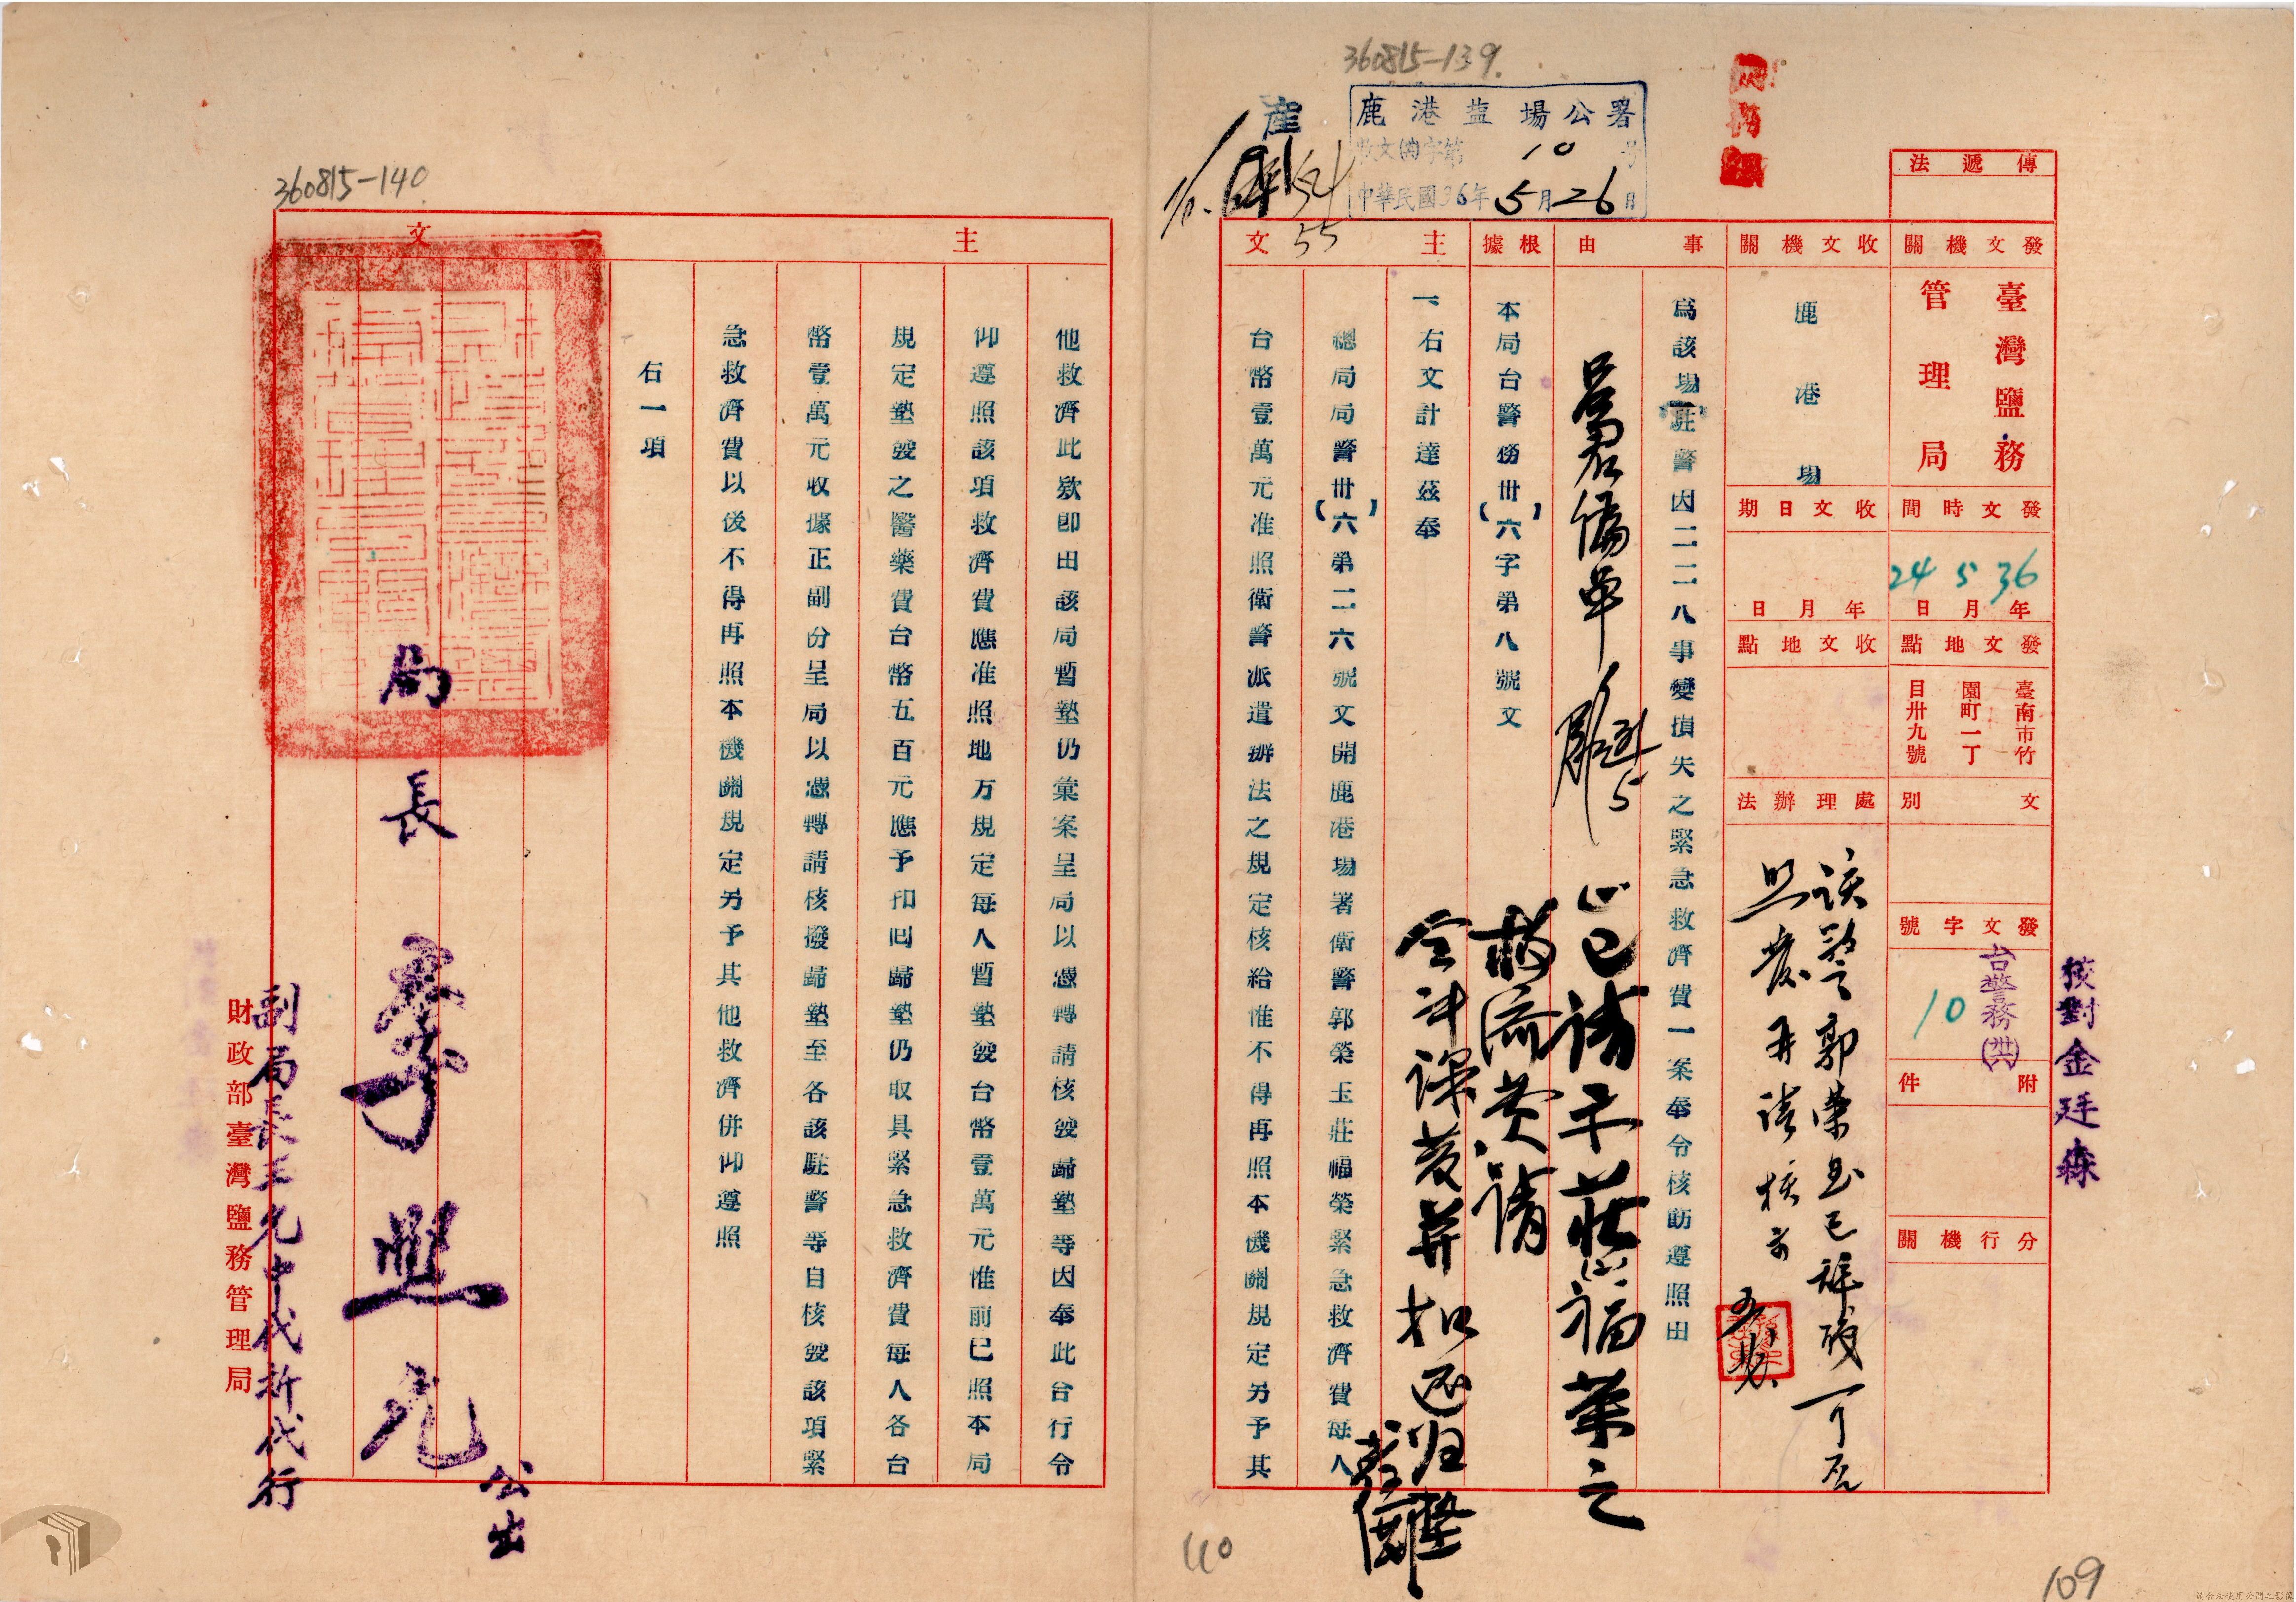 360815-139.
360815-140
產
鹿港鹽場公署
收文(鹵)字第10號
中華民國36年5月26日
55
傳遞法
發文機關
臺灣鹽務
管理局
收文機關
鹿港場
發文時間
36年5月24日
收文日期
年月日
發文地點
臺南市竹
園町一丁
目卅九號
收文地點
文別
處理辦法
該警郭榮玉已辭職
照發并請核示
發文字號
台警務(卅六)
10
附件
分行機關
核對金廷森
事由
為該場駐警因二二八事變損失之緊急救濟費一案奉令核飭遵照由
根據
本局台警務卅(六)字第八號文
主文
一、右文計達茲奉
總局局警卅(六)第二六號文開鹿港場署衛警郭榮玉莊福榮緊急救濟費每人
台幣壹萬元准照衛警派遣辦法之規定核給惟不得再照本機關規定另予其
主文
他救濟此欵即由該局暫墊仍彙案呈局以憑轉請核發歸墊等因奉此台行令
仰遵照該項救濟費應准照地方規定每人暫墊發台幣壹萬元惟前已照本局
規定墊發之醫藥費台幣五百元應予扣回歸墊仍取具緊急救濟費每人各台
幣壹萬元收據正副份呈局以憑轉請核撥歸墊至各該駐警等自核發該項緊
急救濟費以後不得再照本機關規定另予其他救濟併仰遵照
右一項
局長李照允
公出
副局長王允中代拆代行
財政部臺灣鹽務管理局
110
109
請合法使用公開之影像